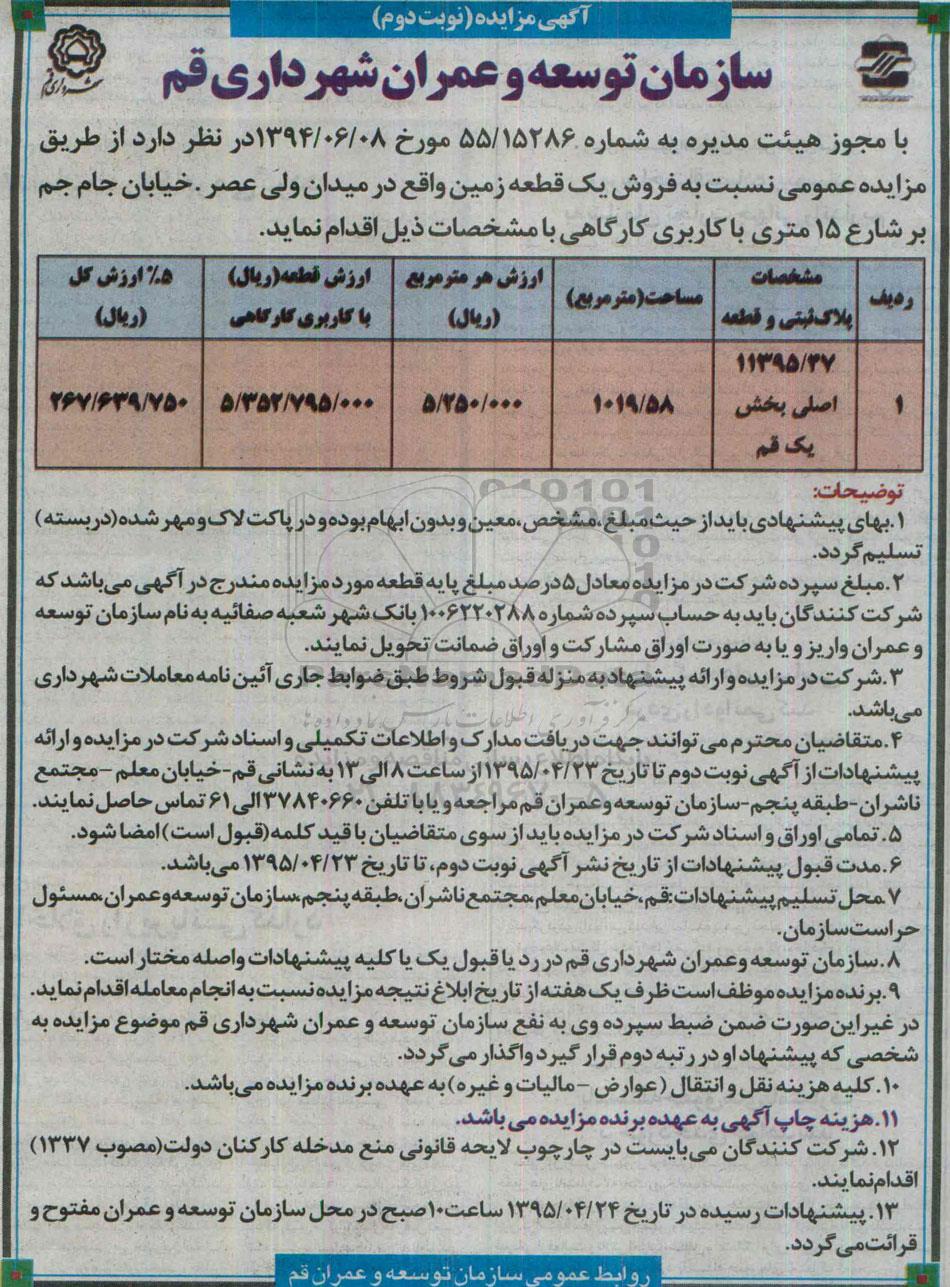 آگهی مزایده (نوبت دوم)
سازمان توسعه و عمران شهرداری قم
با مجوز هیئت مدیره به شماره ۵۵/۱۵۲۸۶ مورخ ۱۳۹۴/۰۶/۰۸ در نظر دارد از طریق
مزایده عمومی نسبت به فروش یک قطعه زمین واقع در میدان ولی عصر . خیابان جام جم
بر شارع ۱۵ متری با کاربری کارگاهی با مشخصات ذیل اقدام نماید.
ردیف | مشخصات پلاک ثبتی و قطعه | مساحت(مترمربع) | ارزش هر مترمربع (ریال) | ارزش قطعه(ریال) با کاربری کارگاهی | ۵٪ ارزش کل (ریال)
۱ | ۱۱۳۹۵/۳۷ اصلی بخش یک قم | ۱۰۱۹/۵۸ | ۵/۲۵۰/۰۰۰ | ۵/۳۵۲/۷۹۵/۰۰۰ | ۲۶۷/۶۳۹/۷۵۰
توضیحات:
۱.بهای پیشنهادی باید از حیث مبلغ،مشخص،معین و بدون ابهام بوده و در پاکت لاک و مهر شده(دربسته)
تسلیم گردد.
۲.مبلغ سپرده شرکت در مزایده معادل ۵درصد مبلغ پایه قطعه مورد مزایده مندرج در آگهی می‌باشد که
شرکت کنندگان باید به حساب سپرده شماره ۱۰۰۶۲۲۰۲۸۸ بانک شهر شعبه صفائیه به نام سازمان توسعه
و عمران واریز و یا به صورت اوراق مشارکت و اوراق ضمانت تحویل نمایند.
۳.شرکت در مزایده و ارائه پیشنهاد به منزله قبول شروط طبق ضوابط جاری آئین نامه معاملات شهرداری
می‌باشد.
۴.متقاضیان محترم می توانند جهت دریافت مدارک و اطلاعات تکمیلی و اسناد شرکت در مزایده و ارائه
پیشنهادات از آگهی نوبت دوم تا تاریخ ۱۳۹۵/۰۴/۲۳ از ساعت ۸ الی ۱۳ به نشانی قم-خیابان معلم -مجتمع
ناشران-طبقه پنجم-سازمان توسعه و عمران قم مراجعه و یا با تلفن ۳۷۸۴۰۶۶۰ الی ۶۱ تماس حاصل نمایند.
۵.تمامی اوراق و اسناد شرکت در مزایده باید از سوی متقاضیان با قید کلمه(قبول است)امضا شود.
۶.مدت قبول پیشنهادات از تاریخ نشر آگهی نوبت دوم، تا تاریخ ۱۳۹۵/۰۴/۲۳ می‌باشد.
۷.محل تسلیم پیشنهادات:قم،خیابان معلم،مجتمع ناشران،طبقه پنجم،سازمان توسعه و عمران،مسئول
حراست سازمان.
۸.سازمان توسعه و عمران شهرداری قم در رد یا قبول یک یا کلیه پیشنهادات واصله مختار است.
۹.برنده مزایده موظف است ظرف یک هفته از تاریخ ابلاغ نتیجه مزایده نسبت به انجام معامله اقدام نماید.
در غیر این صورت ضمن ضبط سپرده وی به نفع سازمان توسعه و عمران شهرداری قم موضوع مزایده به
شخصی که پیشنهاد او در رتبه دوم قرار گیرد واگذار می گردد.
۱۰.کلیه هزینه نقل و انتقال (عوارض -مالیات و غیره) به عهده برنده مزایده می‌باشد.
۱۱.هزینه چاپ آگهی به عهده برنده مزایده می باشد.
۱۲.شرکت کنندگان می‌بایست در چارچوب لایحه قانونی منع مدخله کارکنان دولت(مصوب ۱۳۳۷)
اقدام نمایند.
۱۳.پیشنهادات رسیده در تاریخ ۱۳۹۵/۰۴/۲۴ ساعت ۱۰صبح در محل سازمان توسعه و عمران مفتوح و
قرائت می گردد.
روابط عمومی سازمان توسعه و عمران قم